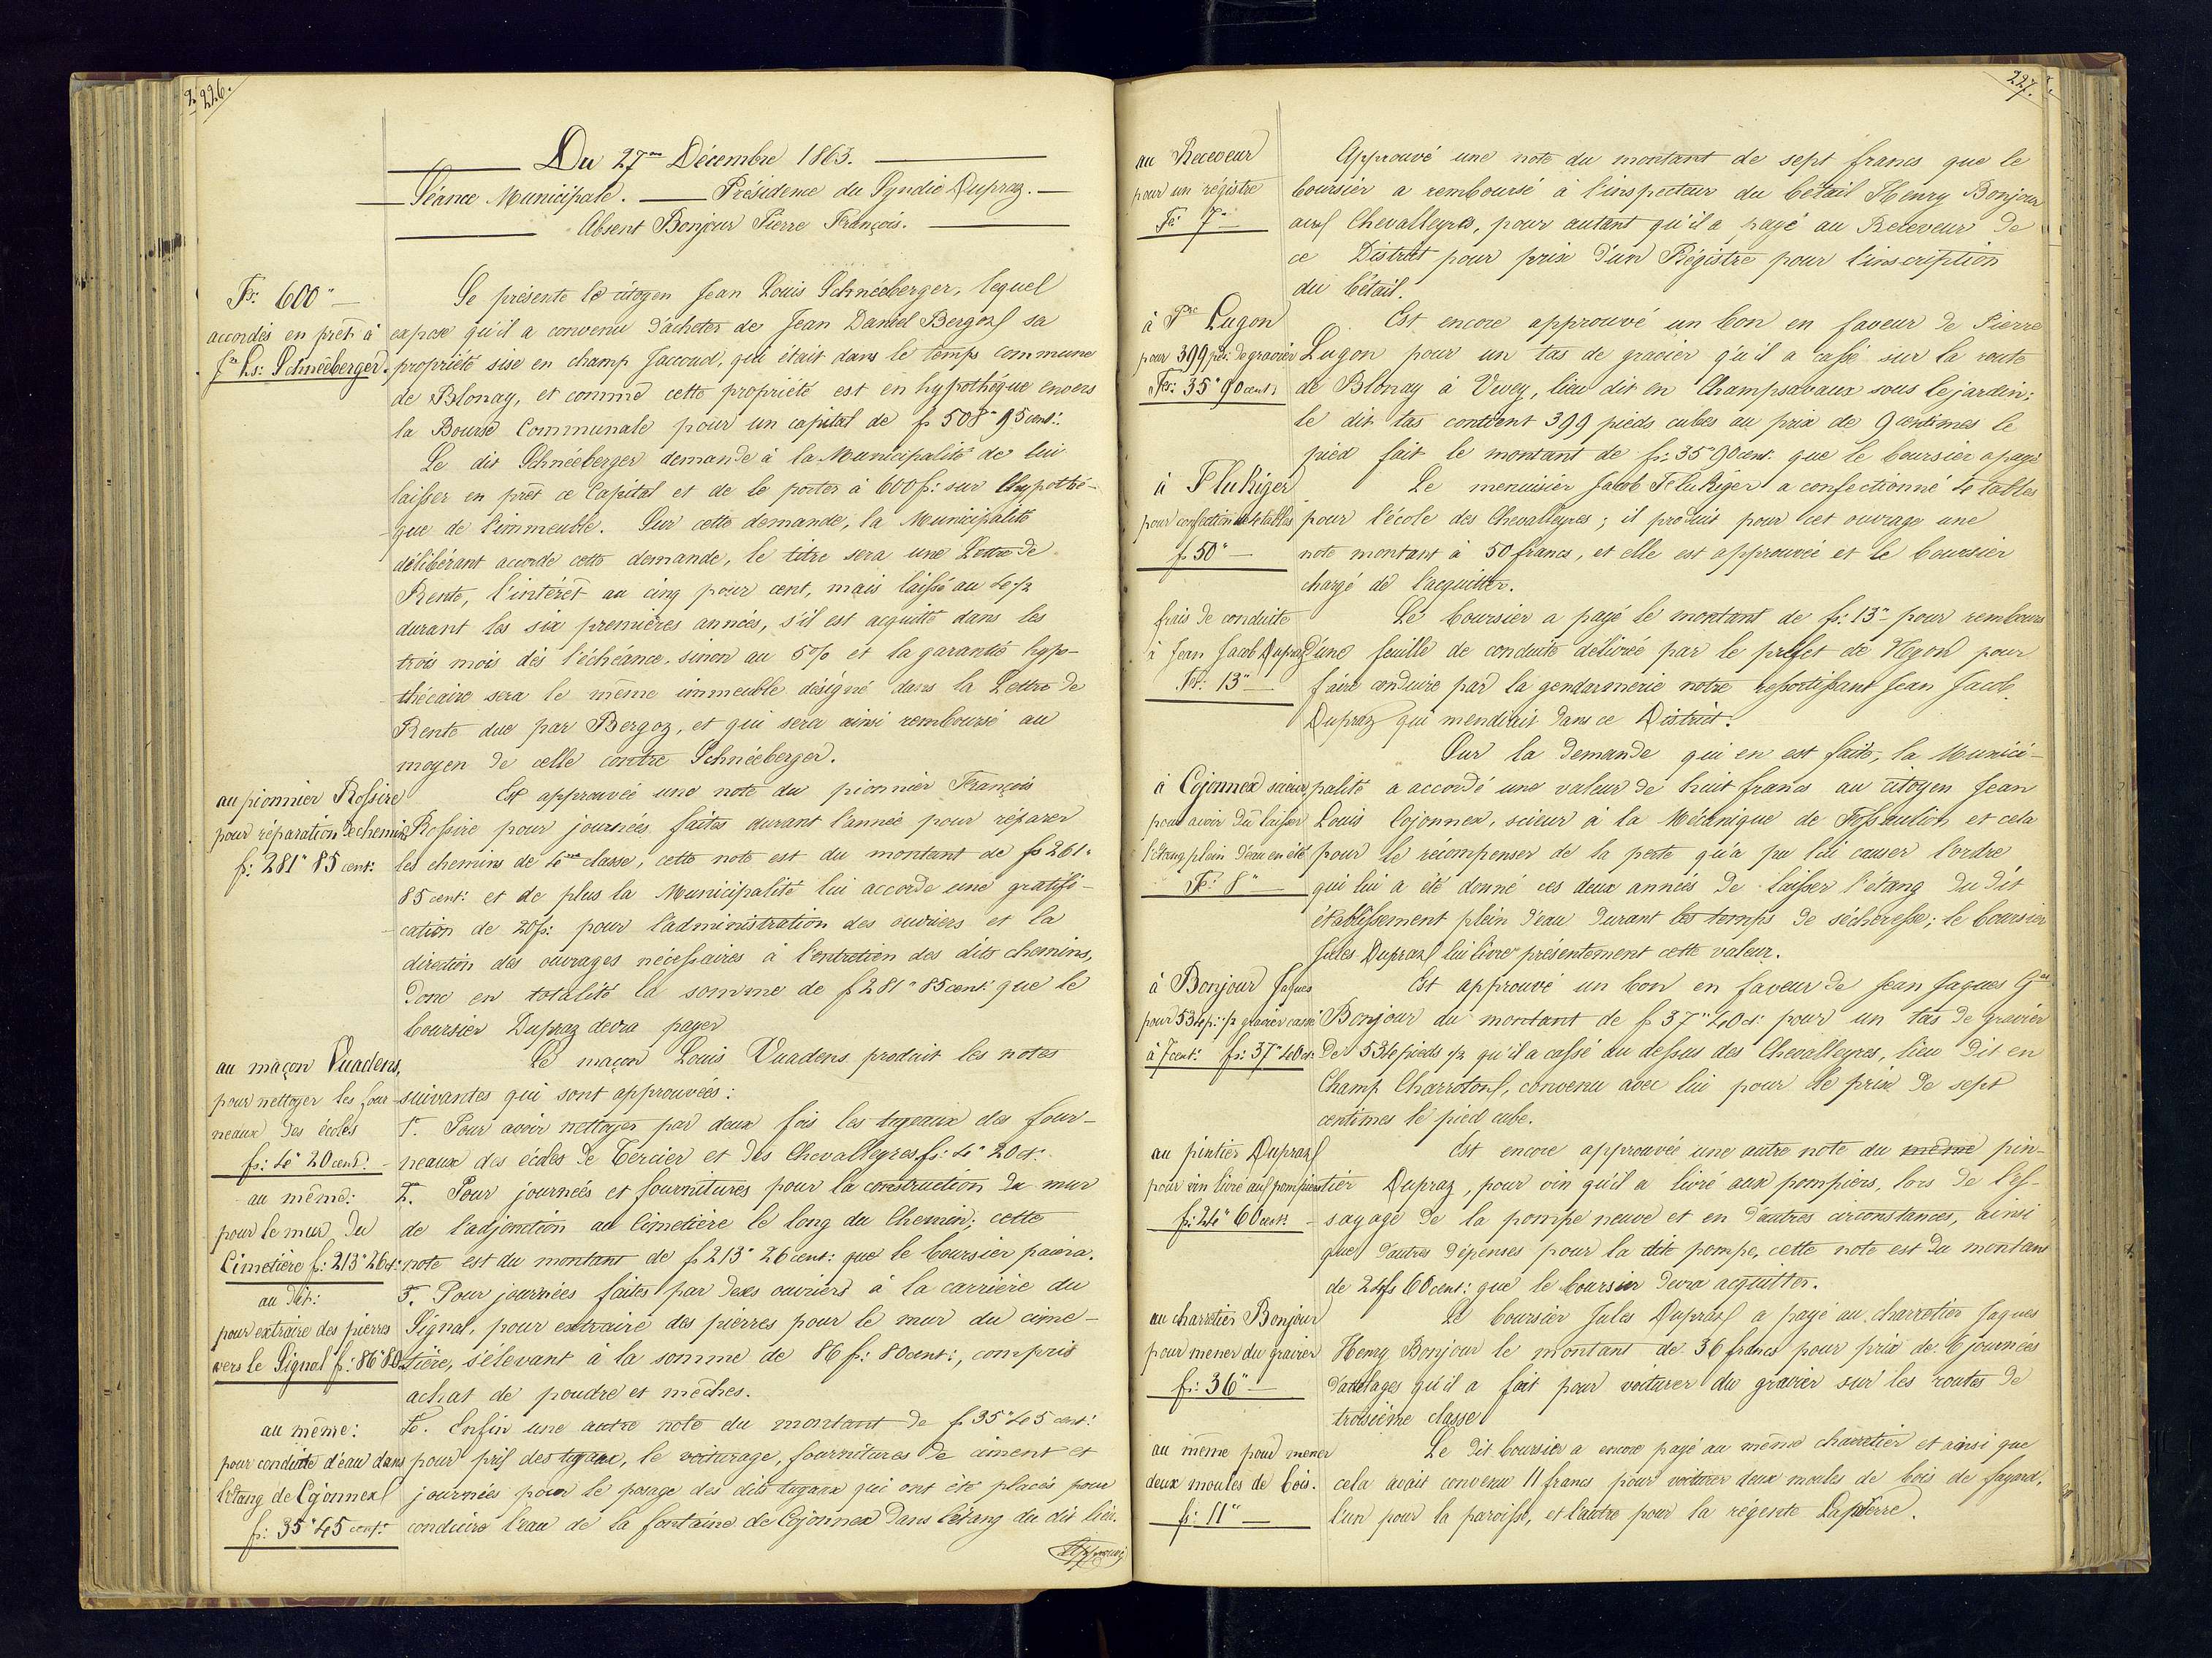 226.
Du 27me Décembre 1863.
Séance Municipale. Présidence du Syndic Dupraz.
Absent Bonjour Pierre François.
Fr: 600"—
accordés en prêt à
Jn Ls: Schnéeberger.
Se présente le citoyen Jean Louis Schnéeberger, lequel
expose qu'il a convenu d'acheter de Jean Daniel Bergoz sa
propriété sise en champ Jaccoud, qui était dans le temps commune
de Blonay, et comme cette propriété est en hypothèque envers
la Bourse Communale pour un capital de fr 508" 95 cent:
Le dit Schnéeberger demande à la Municipalité de lui
laisser en prêt ce Capital et de le porter à 600 fr: sur l'hypothè-
que de l'immeuble. Sur cette demande, la Municipalité
délibérant accorde cette demande, le titre sera une Lettre de
Rente, l'intérêt au cinq pour cent, mais laissé au 4 1/2
durant les six premières années, s'il est acquitté dans les
trois mois dès l'échéance, sinon au 5% et la garantie hypo-
thécaire sera le même immeuble désigné dans la Lettre de
Rente due par Bergoz, et qui sera ainsi remboursé au
moyen de celle contre Schnéeberger.
au pionnier Rossire
pour réparation de chemins
fr: 281" 85 cent:
Est approuvée une note du pionnier François
Rossire pour journées faites durant l'année pour réparer
les chemins de 4me classe, cette note est du montant de fr 261"
85 cent: et de plus la Municipalité lui accorde une gratifi-
cation de 20 fr: pour l'administration des ouvriers et la
direction des ouvrages nécessaires à l'entretien des dits chemins,
Donc en totalité la somme de fr 281" 85 cent: que le
boursier Dupraz devra payer
au maçon Vuadens,
pour nettoyer les four-
neaux des écoles
fr: 4" 20 cent:
Le maçon Louis Vuadens produit les notes
suivantes qui sont approuvées:
1°. Pour avoir nettoyer par deux fois les tuyeaux des four-
neaux des écoles de Tercier et des Chevalleyres fr: 4" 20 ct:
au même:
pour le mur du
Cimetière fr: 213" 26 ct:
2. Pour journées et fournitures pour la construction du mur
de l'adjonction au Cimetière le long du Chemin; cette
note est du montant de fr 213" 26 cent: que le boursier paiera.
au dit:
pour extraire des pierres
vers le Signal fr: 86" 80
3. Pour journées faites par des ouvriers à la carrière du
Signal, pour extraire des pierres pour le mur du cime-
tière, s'élevant à la somme de 86 fr: 80 cent:, compris
achat de poudre et mêches.
au même:
pour conduite d'eau dans
l'étang de Cojonnex
fr: 35" 45 cent:
4. Enfin une autre note du montant de fr 35" 45 cent:
pour prix des tuyaux, le voiturage, fournitures de ciment et
journées pour le posage des dits tuyaux qui ont été placés pour
conduire l'eau de la fontaine de Cojonnex dans l'étang du dit lieu.
Approuvé
227.
au Receveur
pour un régistre
Fr: 7"—
Approuvé une note du montant de sept francs que le
boursier a remboursé à l'inspecteur du bétail Henry Bonjour
aux Chevalleyres, pour autant qu'il a payé au Receveur de
ce District pour prix d'un Régistre pour l'inscription
du bétail.
à Pre Lugon
pour 399 pds: de gravier
Fr: 35" 90 cent:
Est encore approuvé un bon en faveur de Pierre
Lugon pour un tas de gravier qu'il a cassé sur la route
de Blonay à Vevey, lieu dit en Champsavaux sous le jardin;
le dit tas contient 399 pieds cubes au prix de 9 centimes le
pied fait le montant de fr: 35" 90 cent: que le boursier a payé
à Flukiger
pour confection de 4 tables
fr 50"—
Le menuisier Jacob Flukiger a confectionné 4 tables
pour l'école des Chevalleyres; il produit pour cet ouvrage une
note montant à 50 francs, et elle est approuvée et le boursier
chargé de l'acquitter.
frais de conduite
à Jean Jacob Dupraz
Fr: 13"—
Le boursier a payé le montant de fr: 13"- pour rembours
d'une feuille de conduite délivrée par le préfet de Nyon pour
faire conduire par la gendarmerie notre ressortissant Jean Jacob
Dupraz qui mendiait dans ce District.
à Cojonnex scieur
pour avoir dû laisser
l'étang plein d'eau en été
Fr: 8"—
Sur la demande qui en est faite, la Munici-
palité a accordé une valeur de huit francs au citoyen Jean
Louis Cojonnex, scieur à la Mécanique de et cela
pour le récompenser de la perte qu'a pu lui causer l'ordre
qui lui a été donné ces deux années de laisser l'étang du dit
établissement plein d'eau durant les temps de sécheresse; le boursier
Jules Dupraz lui livre présentement cette valeur.
à Bonjour Jaques
pour 534 p: 1/2 gravier cassé
à 7 cent: fr: 37" 40 ct:
Est approuvé un bon en faveur de Jean Jaques
Bonjour du montant de fr 37" 40 ct: pour un tas de gravier
de 534 pieds 1/2 qu'il a cassé au dessus des Chevalleyres, lieu dit en
Champ Charrotons, convenu avec lui pour le prix de sept
centimes le pied cube.
au pintier Dupraz
pour vin livré aux pompiers
fr: 24" 60 cent:
Est encore approuvée une autre note du même pin-
tier Dupraz, pour vin qu'il a livré aux pompiers, lors de l'es-
sayage de la pompe neuve et en d'autres circonstances, ainsi
que d'autres dépenses pour la dite pompe, cette note est du montant
de 24 fr 60 cent: que le boursier devra acquitter.
au charretier Bonjour
pour mener du gravier
fr: 36"—
Le boursier Jules Dupraz a payé au charretier Jaques
Henry Bonjour le montant de 36 francs pour prix de 6 journées
d'attelages qu'il a fait pour voiturer du gravier sur les routes de
troisième classe
au même pour mener
deux moules de bois.
fr: 11"—
Le dit boursier a encore payé au même charretier et ainsi que
cela avait convenu 11 francs pour voiturer deux moules de bois de fayard,
l'un pour la paroisse, et l'autre pour la régente Lapierre.